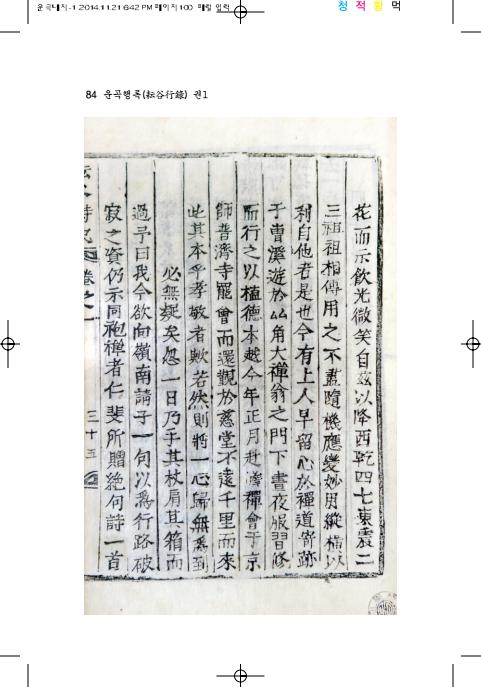 운곡내지-1 2014.11.21 6:42 PM 페이지100 매킨 입력
청 적 황 먹
84 운곡행록(耘谷行錄) 권1
花而示飮光微笑自玆以降西乾四七東震二
三祖祖相傳用之不盡隨機應變妙用縱橫以
利自他者是也今有上人早留心於禪道寄跡
于曹溪遊於 角大禪翁之門下晝夜服習修
而行之以植德本越今年正月赴 禪會于京
師普濟寺罷會而還覲於慈堂不遠千里而來
此其本乎孝敬者歟若然則將一心歸無爲到
必無疑矣忽一日乃手其杖肩其箱而
過予曰我今欲向嶺南請子一句以爲行路破
寂之資仍示同袍禪者仁斐所贈絶句詩一首
詩史 卷之一 三十五